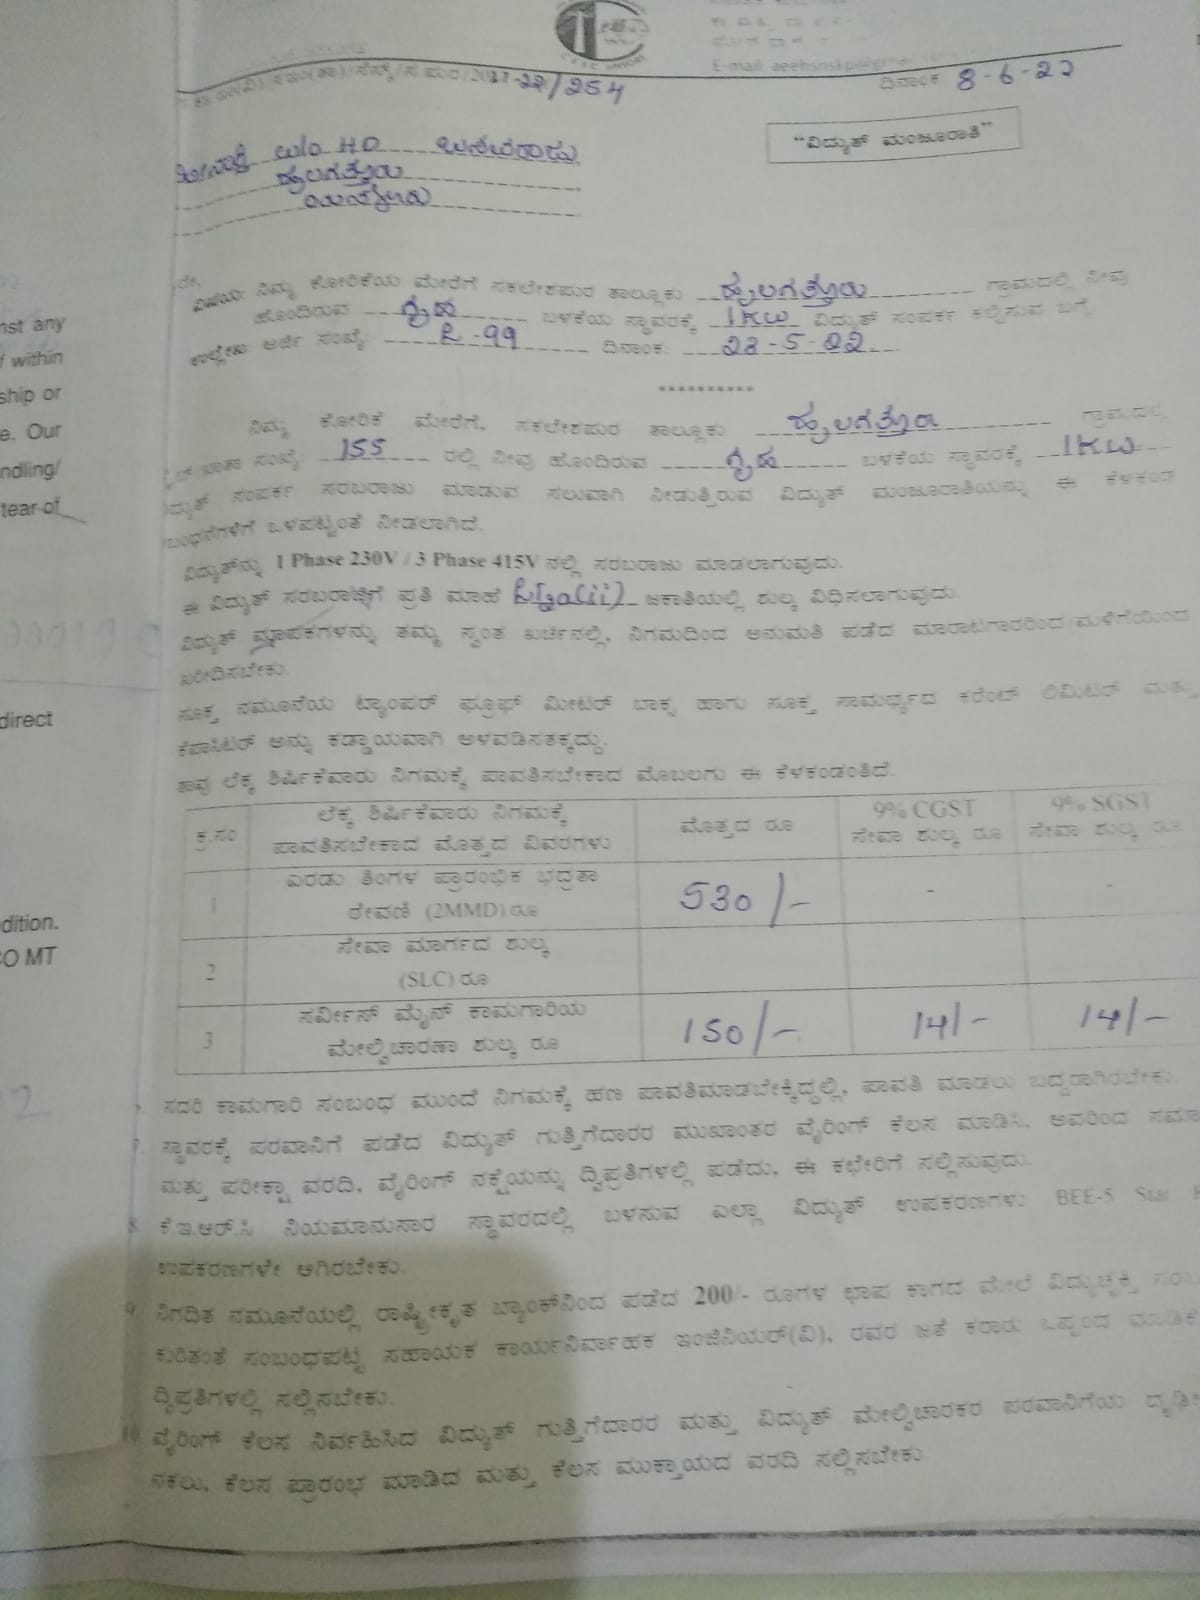 E-mail: aeehsnskp@
22/254
ದಿನಾಂಕ 8-6-22
"ವಿದ್ಯುತ್ ಮಂಜೂರಾತಿ"
W/o HD
ವಿಷಯ: ನಿಮ್ಮ ಕೋರಿಕೆಯ ಮೇರೆಗೆ ಸಕಲೇಶಪುರ ತಾಲ್ಲೂಕು ಗ್ರಾಮದಲ್ಲಿ ನೀವು
ಹೊಂದಿರುವ ಗೃಹ ಬಳಕೆಯ ಸ್ಥಾವರಕ್ಕೆ 1KW ವಿದ್ಯುತ್ ಸಂಪರ್ಕ ಕಲ್ಪಿಸುವ ಬಗ್ಗೆ.
ಉಲ್ಲೇಖ: ಅರ್ಜಿ ಸಂಖ್ಯೆ: R-99 ದಿನಾಂಕ: 23-5-22
**********
ನಿಮ್ಮ ಕೋರಿಕೆ ಮೇರೆಗೆ, ಸಕಲೇಶಪುರ ತಾಲ್ಲೂಕು ಗ್ರಾಮದಲ್ಲಿ
ಖಾತಾ ಸಂಖ್ಯೆ: 155 ರಲ್ಲಿ ನೀವು ಹೊಂದಿರುವ ಗೃಹ ಬಳಕೆಯ ಸ್ಥಾವರಕ್ಕೆ 1KW
ವಿದ್ಯುತ್ ಸಂಪರ್ಕ ಸರಬರಾಜು ಮಾಡುವ ಸಲುವಾಗಿ ನೀಡುತ್ತಿರುವ ವಿದ್ಯುತ್ ಮಂಜೂರಾತಿಯನ್ನು ಈ ಕೆಳಕಂಡ
ನಿಬಂಧನೆಗಳಿಗೆ ಒಳಪಟ್ಟಂತೆ ನೀಡಲಾಗಿದೆ.
ವಿದ್ಯುತ್‌ನ್ನು 1 Phase 230V / 3 Phase 415V ನಲ್ಲಿ ಸರಬರಾಜು ಮಾಡಲಾಗುವುದು.
ಈ ವಿದ್ಯುತ್ ಸರಬರಾಜಿಗೆ ಪ್ರತಿ ಮಾಹೆ ಜಕಾತಿಯಲ್ಲಿ ಶುಲ್ಕ ವಿಧಿಸಲಾಗುವುದು.
ವಿದ್ಯುತ್ ಮಾಪಕಗಳನ್ನು ತಮ್ಮ ಸ್ವಂತ ಖರ್ಚಿನಲ್ಲಿ, ನಿಗಮದಿಂದ ಅನುಮತಿ ಪಡೆದ ಮಾರಾಟಗಾರರಿಂದ/ಮಳಿಗೆಯಿಂದ
ಖರೀದಿಸಬೇಕು.
ಸೂಕ್ತ ನಮೂನೆಯ ಟ್ಯಾಂಪರ್ ಫ್ರೂಫ್ ಮೀಟರ್ ಬಾಕ್ಸ ಹಾಗು ಸೂಕ್ತ ಸಾಮರ್ಥ್ಯದ ಕರೆಂಟ್ ಲಿಮಿಟರ್ ಮತ್ತು
ಕೆಪಾಸಿಟರ್ ಅನ್ನು ಕಡ್ಡಾಯವಾಗಿ ಅಳವಡಿಸತಕ್ಕದ್ದು.
ತಾವು ಲೆಕ್ಕ ಶಿರ್ಷಿಕೆವಾರು ನಿಗಮಕ್ಕೆ ಪಾವತಿಸಬೇಕಾದ ಮೊಬಲಗು ಈ ಕೆಳಕಂಡಂತಿದೆ.
ಕ್ರ.ಸಂ ಲೆಕ್ಕ ಶಿರ್ಷಿಕೆವಾರು ನಿಗಮಕ್ಕೆ ಪಾವತಿಸಬೇಕಾದ ಮೊತ್ತದ ವಿವರಗಳು ಮೊತ್ತದ ರೂ 9% CGST ಸೇವಾ ಶುಲ್ಕ ರೂ 9% SGST ಸೇವಾ ಶುಲ್ಕ ರೂ
1 ಎರಡು ತಿಂಗಳ ಪ್ರಾರಂಭಿಕ ಭದ್ರತಾ ಠೇವಣಿ (2MMD) ರೂ 530/- - -
2 ಸೇವಾ ಮಾರ್ಗದ ಶುಲ್ಕ (SLC) ರೂ
3 ಸರ್ವೀಸ್ ಮೈನ್ ಕಾಮಗಾರಿಯ ಮೇಲ್ವಿಚಾರಣಾ ಶುಲ್ಕ ರೂ 150/- 14/- 14/-
ಸದರಿ ಕಾಮಗಾರಿ ಸಂಬಂಧ ಮುಂದೆ ನಿಗಮಕ್ಕೆ ಹಣ ಪಾವತಿಮಾಡಬೇಕ್ಕಿದ್ದಲ್ಲಿ, ಪಾವತಿ ಮಾಡಲು ಬದ್ದರಾಗಿರಬೇಕು.
7 ಸ್ಥಾವರಕ್ಕೆ ಪರವಾನಿಗೆ ಪಡೆದ ವಿದ್ಯುತ್ ಗುತ್ತಿಗೆದಾರರ ಮುಖಾಂತರ ವೈರಿಂಗ್ ಕೆಲಸ ಮಾಡಿಸಿ, ಅವರಿಂದ
ಮತ್ತು ಪರೀಕ್ಷಾ ವರದಿ, ವೈರಿಂಗ್ ನಕ್ಷೆಯನ್ನು ದ್ವಿಪ್ರತಿಗಳಲ್ಲಿ ಪಡೆದು, ಈ ಕಛೇರಿಗೆ ಸಲ್ಲಿಸುವುದು.
8 ಕೆ.ಇ.ಆರ್.ಸಿ ನಿಯಮಾನುಸಾರ ಸ್ಥಾವರದಲ್ಲಿ ಬಳಸುವ ಎಲ್ಲಾ ವಿದ್ಯುತ್ ಉಪಕರಣಗಳು BEE-5 Star
ಉಪಕರಣಗಳೇ ಆಗಿರಬೇಕು.
9 ನಿಗದಿತ ನಮೂನೆಯಲ್ಲಿ ರಾಷ್ಟ್ರೀಕೃತ ಬ್ಯಾಂಕ್‌ನಿಂದ ಪಡೆದ 200/- ರೂಗಳ ಛಾಪ ಕಾಗದ ಮೇಲೆ ವಿದ್ಯುಚ್ಛಕ್ತಿ
ಕುರಿತಂತೆ ಸಂಬಂಧಪಟ್ಟ ಸಹಾಯಕ ಕಾರ್ಯನಿರ್ವಾಹಕ ಇಂಜಿನಿಯರ್(ವಿ), ರವರ ಜತೆ ಕರಾರು ಒಪ್ಪಂದ
ದ್ವಿಪ್ರತಿಗಳಲ್ಲಿ ಸಲ್ಲಿಸಬೇಕು.
10 ವೈರಿಂಗ್ ಕೆಲಸ ನಿರ್ವಹಿಸಿದ ವಿದ್ಯುತ್ ಗುತ್ತಿಗೆದಾರರ ಮತ್ತು ವಿದ್ಯುತ್ ಮೇಲ್ವಿಚಾರಕರ ಪರವಾನಿಗೆಯ
ನಕಲು, ಕೆಲಸ ಪ್ರಾರಂಭ ಮಾಡಿದ ಮತ್ತು ಕೆಲಸ ಮುಕ್ತಾಯದ ವರದಿ ಸಲ್ಲಿಸಬೇಕು.
any
within
ship or
e. Our
ndling/
tear of
direct
dition.
CO MT